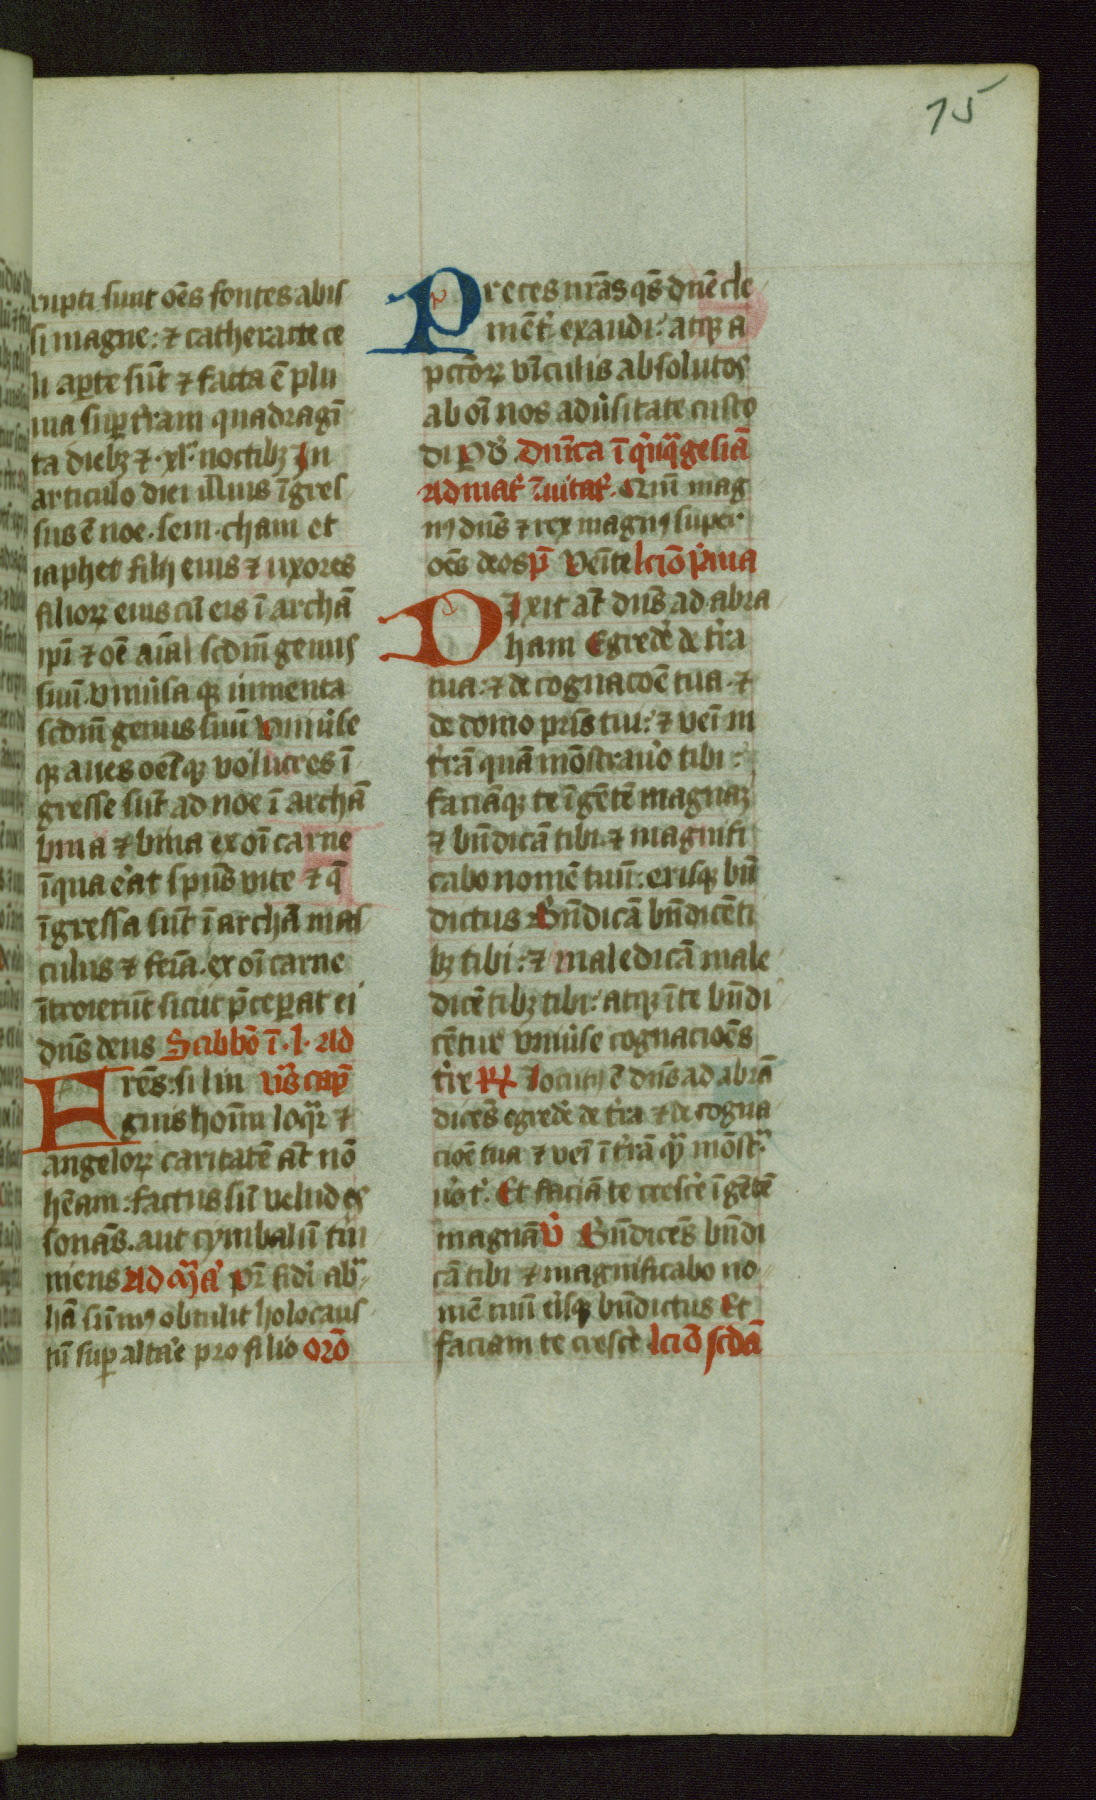 15
rupti sunt oēs fontes abis
si magne: ⁊ catheracte ce
li aꝑte sūt ⁊ facta ē plu
uia suꝑ t̄ram quadragī
ta diebꝫ ⁊ ·xl· noctibꝫ In
articulo diei illius īgres
sus ē noe· sem· cham et
iaphet filij eius ⁊ uxores
filioꝝ eius cū eis ī archā
ip̄i ⁊ oē aīal scdm̄ genus
suū· vniūsa qꝫ iumenta
scdm̄ genus suū vniūse
qꝫ aues oēsqꝫ volucres ī
gresse sūt ad noe ī archā
bina ⁊ bina ex oī carne
īqua e͛at spūs vite ⁊ q̄
īgressa sūt ī archā mas
culus ⁊ fēīa· ex oī carne
ītroierūt sicut p̄ceꝑat ei
dn̄s deus Sabb̄o ī· l· Ad
Fres̄: si lin vs̄ cap̄
guis hoīm loq̄r ⁊
angeloꝝ caritatē at̄ nō
hēam: factus sū velud es
sonās· aut cymbalū tin
niens Ad mȝā pr̄ fidī ab͛
hā sūmꝰ obtulit holocaus
tū suꝑ alta͛e pro filio oro͞
Preces nr̄as qs̄ dn̄e cle
mēt͛ exaudi: atqꝫ a
pctōrꝝ vīculis absolutos
ab oī nos adūsitate custo
di P d̄· Dn̄ica ī q͛nq̄gesīā
Ad mat͛ īuitat͛· Qm̄ mag
nꝰ dn̄s ⁊ rex magnꝰ super
oēs deos p̄ Veīte lcīo p͛ma
Dixit at̄ dn̄s ad abra
ham Egrede͛ de t̄ra
tua: ⁊ de cognacōe tua· ⁊
de domo pr̄is tui: ⁊ veī in
t̄rā quā mōstraue͛o tibi:
faciāqꝫ te ī gētē magnaꝫ
⁊ bn̄dicā tibi· ⁊ magnifi
cabo nomē tuū: erisqꝫ bn̄
dictus Bn̄dicā bn̄dicēti
bꝫ tibi: ⁊ maledicā male
dicētibꝫ tibi: atqꝫ ī te bn̄di
cētur vniūse cognacioēs
t̄re R͛ Locutꝰ ē dn̄s ad abrā
dicēs egrede͛ de t̄ra ⁊ de cogna
cioē tua ⁊ veī ī t̄rā q̄ mōst͛
u͛o t͛· Et faciā te cresce͛ ī gētē
magnā V͛ Bn̄dicēs bn̄di
cā tibi ⁊ magnificabo no
mē tuū e͛isqꝫ bn̄dictus Et
faciam te cresce͛ lcīo scdā